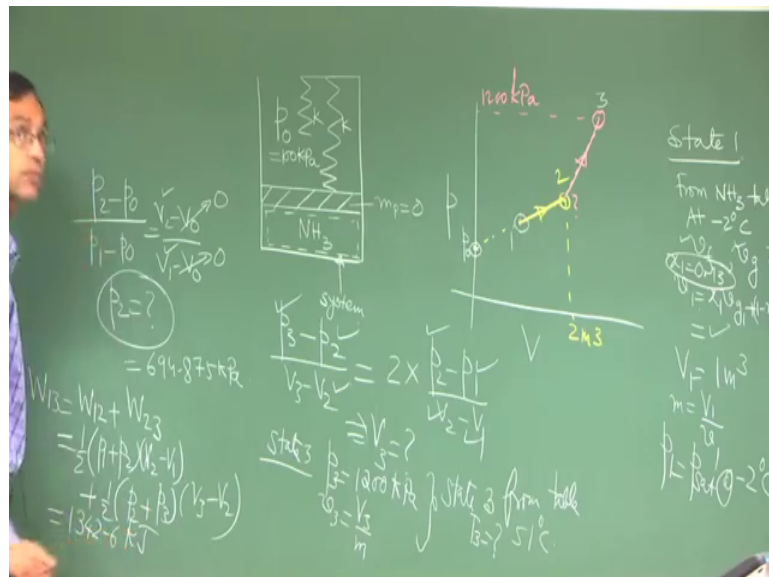 p₂ - p₀ / p₁ - p₀ = V₂ - V₀ → 0 / V₁ - V₀ → 0
p₂ = ?
= 694.875 kPa
W₁₃ = W₁₂ + W₂₃
= ½ (p₁ + p₂)(V₂ - V₁)
+ ½ (p₂ + p₃)(V₃ - V₂)
= 1342.6 kJ
p₀
= 100 kPa
k
k
m_p = 0
NH₃
system
p₃ - p₂ / V₃ - V₂ = 2 × p₂ - p₁ / V₂ - V₁
⇒ V₃ = ?
State 3
p₃ = 1200 kPa } State 3 from table
v₃ = V₃ / m
T₃ = ? 51°C
1200 kPa
3
2
?
1
P
p₀
V
2 m3
State 1
From NH₃
At -2°C
= ✓
V₁ = 1 m³
m = V₁ / v₁